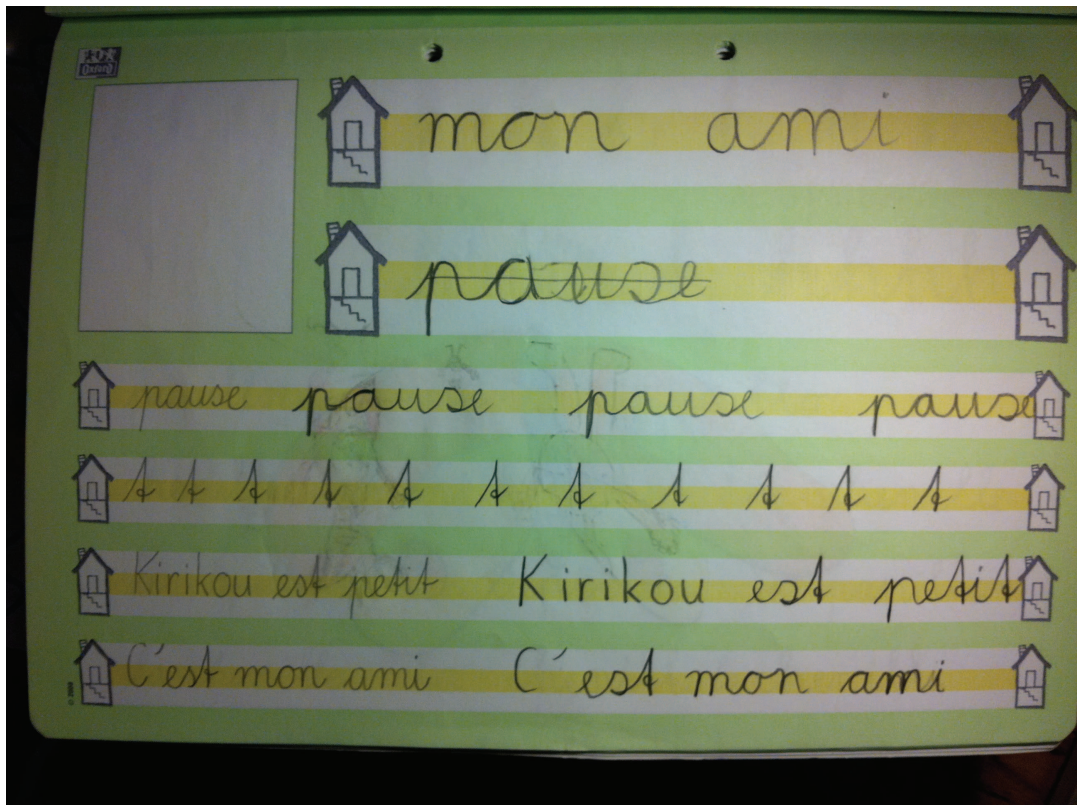 OXFORD
mon ami
pause
pause pause pause pause
t t t t t t t t t t t
Kirikou est petit Kirikou est petit
C'est mon ami C'est mon ami
© 2009